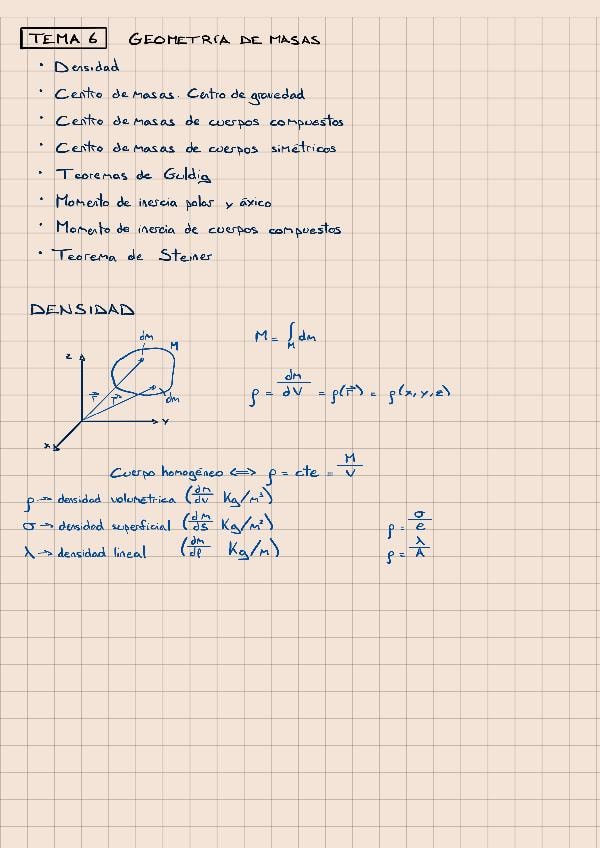 TEMA 6 GEOMETRÍA DE MASAS
· Densidad
· Centro de masas. Centro de gravedad
· Centro de masas de cuerpos compuestos
· Centro de masas de cuerpos simétricos
· Teoremas de Guldig
· Momento de inercia polar y áxico
· Momento de inercia de cuerpos compuestos
· Teorema de Steiner
DENSIDAD
z dm M r⃗ r⃗' dm y x
M = ∫_M dm
ρ = dm/dV = ρ(r⃗) = ρ(x,y,z)
Cuerpo homogéneo ⟺ ρ = cte = M/V
ρ → densidad volumétrica (dm/dv Kg/m³)
σ → densidad superficial (dm/ds Kg/m²) ρ = σ/e
λ → densidad lineal (dm/dl Kg/m) ρ = λ/A